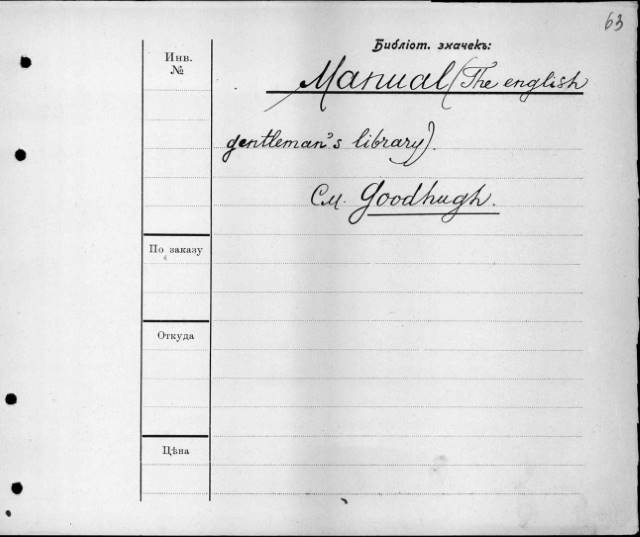 63
Библіот. значекъ:
Инв.
№
Manual (The english
gentleman's library).
См. Goodhugh.
По заказу
Откуда
Цѣна